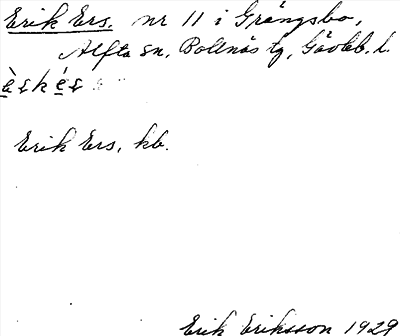 Erik Ers. nr 11 i Grängsbo,
Alfta sn, Bollnäs tg, Gävleb. l.
èskés
Erik Ers, kb.
Erik Eriksson 1929